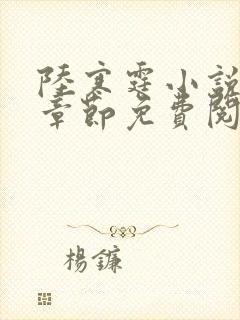 陸寒霆小說
章節免費閱
楊鐮